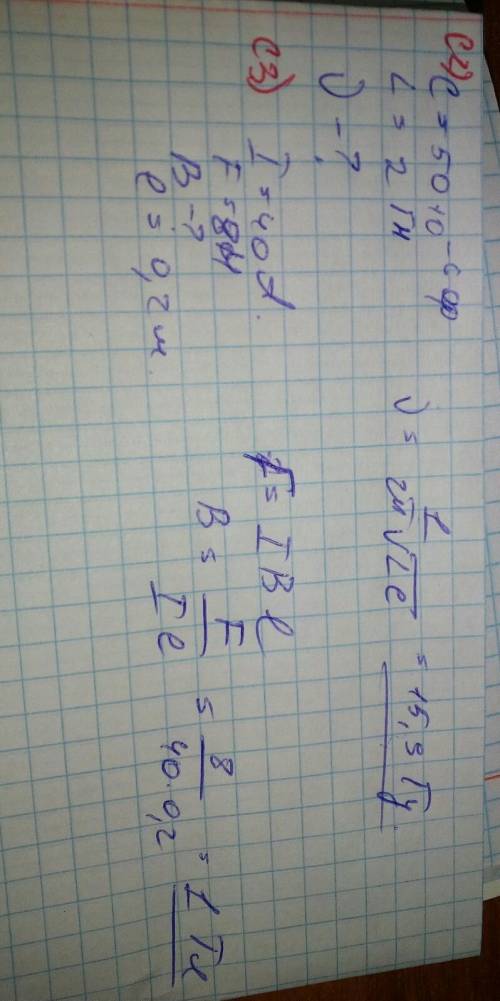 С2) C = 50·10⁻⁶ Ф
L = 2 Гн
ν - ?
ν = 1 / 2π√LC = 15,9 Гц
С3) I = 40 А.
F = 8 Н
B - ?
l = 0,2 м.
F = I B l
B = F / I l = 8 / 40·0,2 = 1 Тл